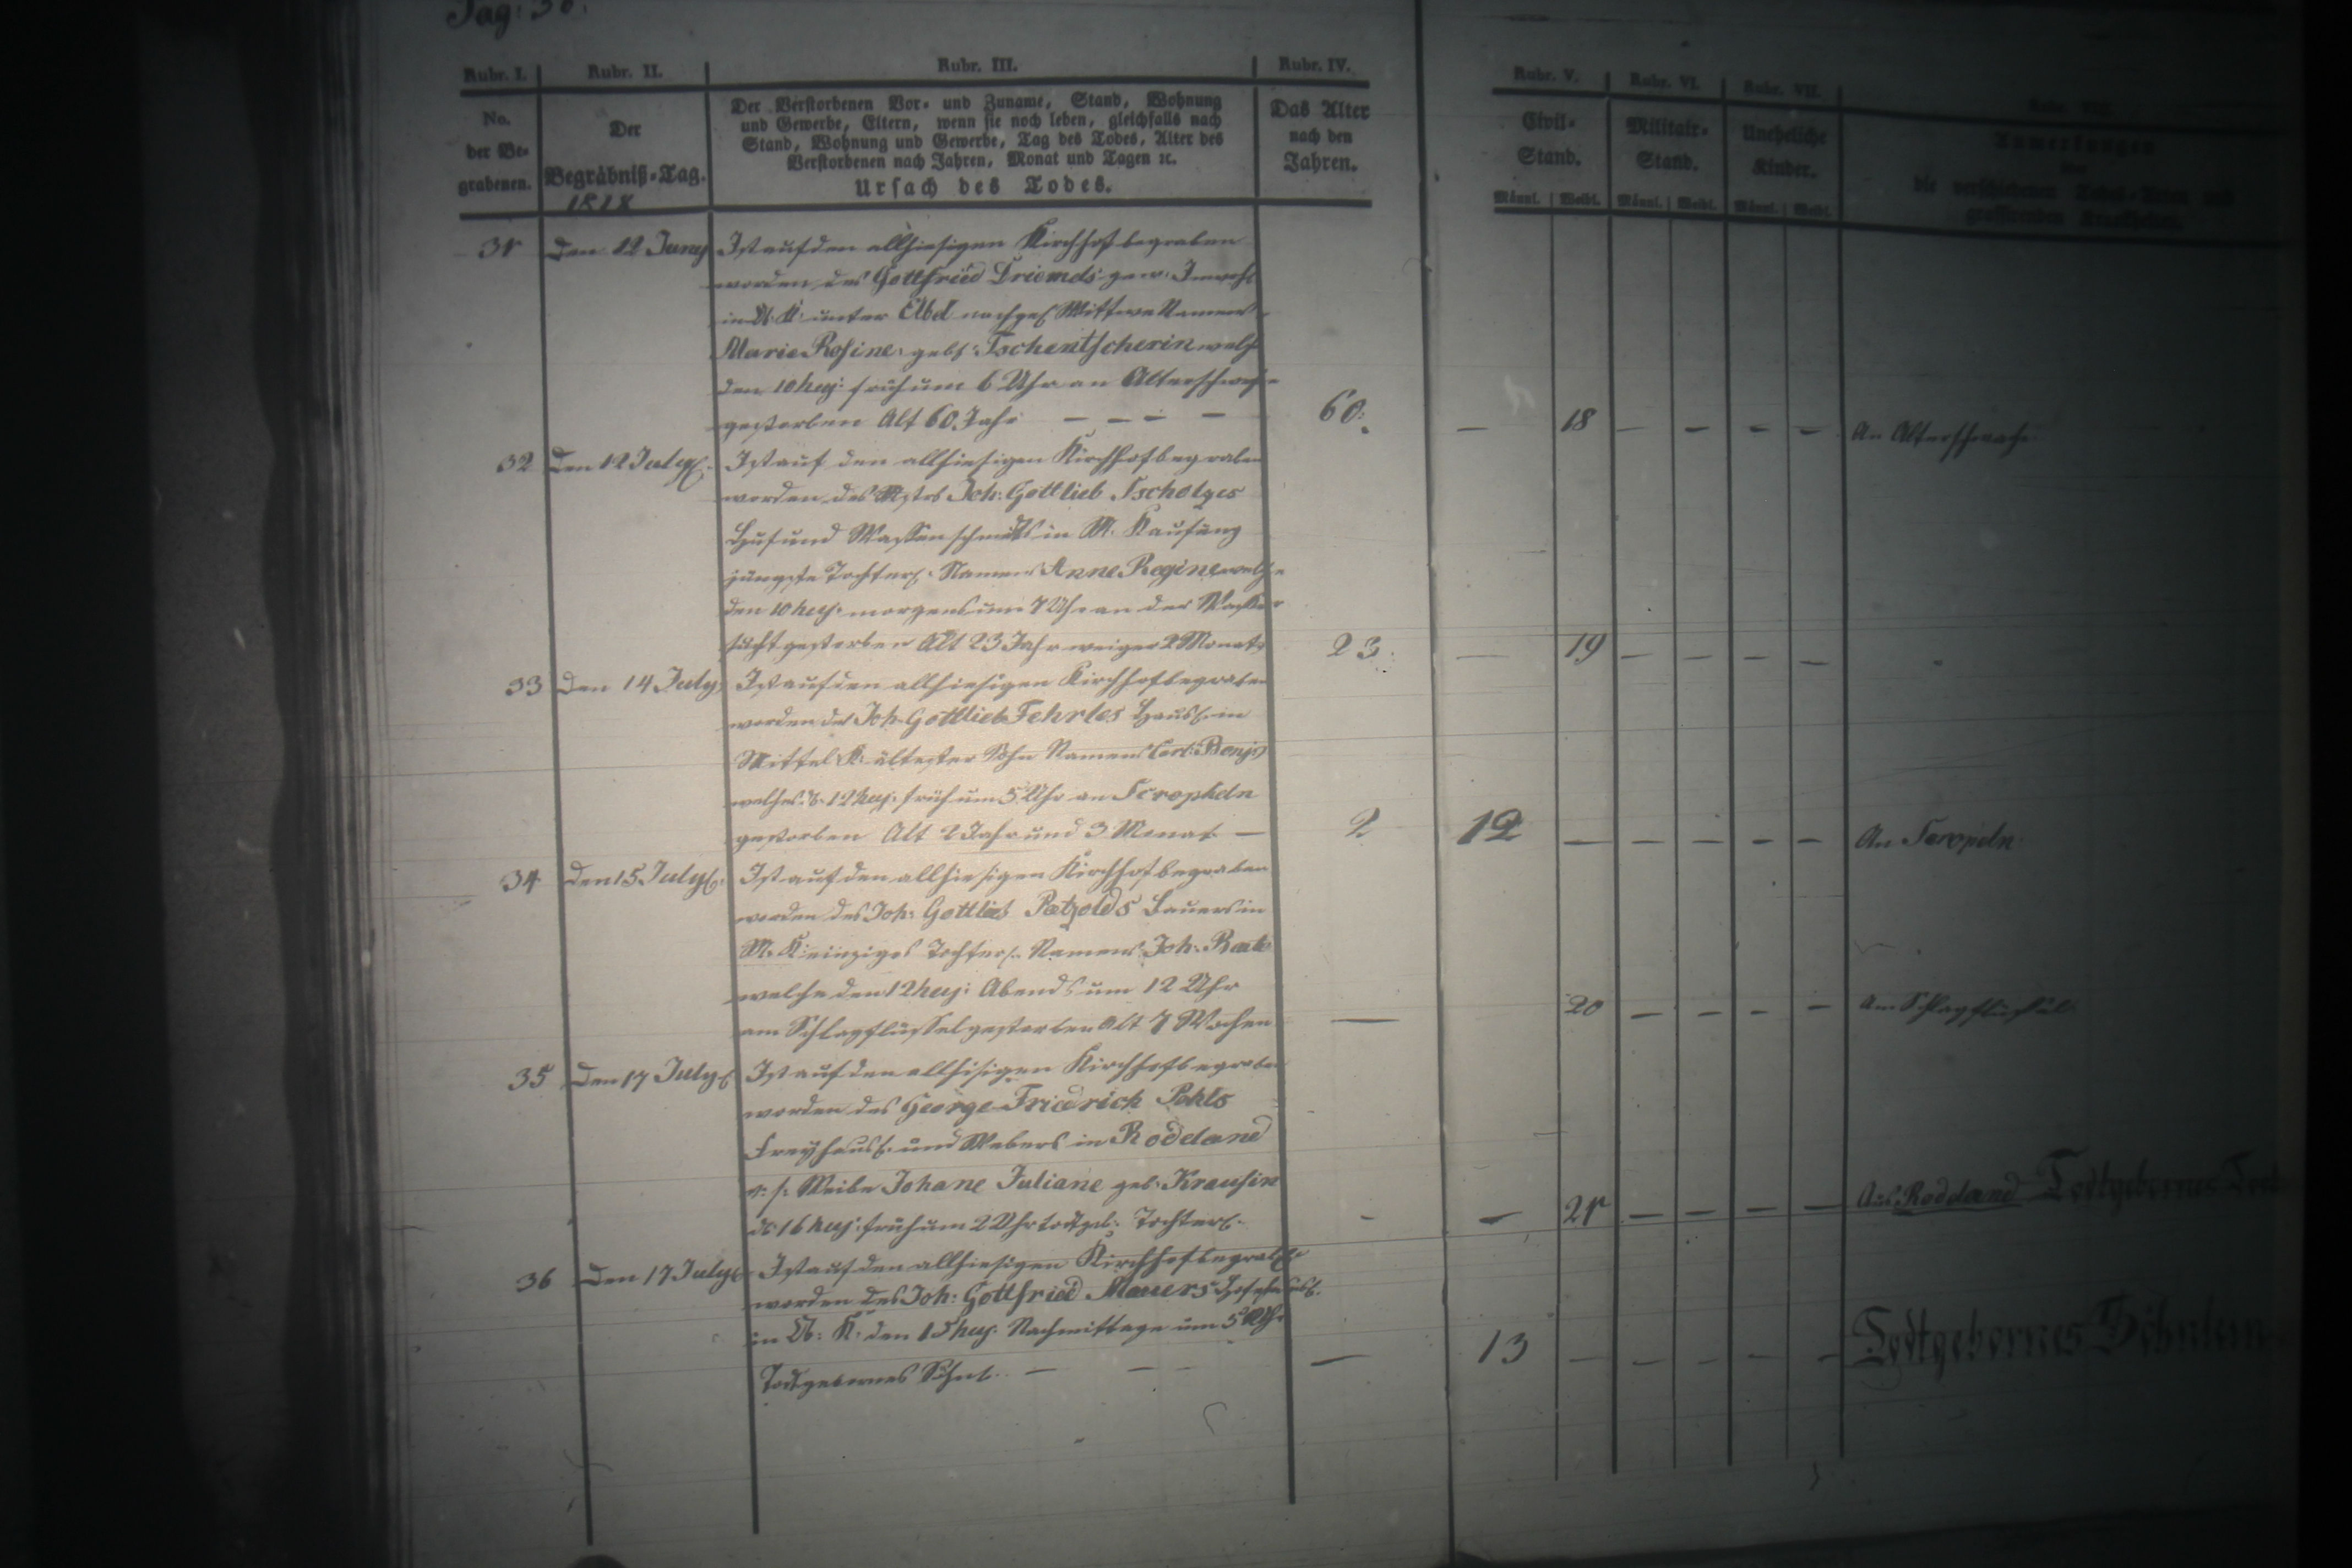 Pag: 30.
Rubr. I. Rubr. II. Rubr. III. Rubr. IV. Rubr. V. Rubr. VI. Rubr. VII. Rubr. VIII.
No. der Be-grabenen.
Der Begräbniß-Tag.
1818
Der Verstorbenen Vor- und Zuname, Stand, Wohnung
und Gewerbe, Eltern, wenn sie noch leben, gleichfalls nach
Stand, Wohnung und Gewerbe, Tag des Todes, Alter des
Verstorbenen nach Jahren, Monat und Tagen ꝛc.
Ursach des Todes.
Das Alter
nach den
Jahren.
Civil-
Stand.
Militair-
Stand.
Uneheliche
Kinder.
Anmerkungen
die verschiedenen Todes-Arten und
grassirenden Krankheiten.
Männl. Weibl. Männl. Weibl. Männl. Weibl.
31 Den 12 Juny Ist auf den allhiesigen Kirchhof begraben
worden des Gottfried gew. Inwoh
in K. unter nachgel Wittwe Namens
Marie Rosine geb: Tschentscherin welch
den 10 huj: früh um 6 Uhr an Alterschwäche
gestorben Alt 60 Jahr — — — — 60. — 18 — — — — An Alterschwäche
32 Den 12 July Ist auf den allhiesigen Kirchhof begraben
worden des Mstrs Joh: Gottlieb
Huf und Waffenschmidts in M. Kaufung
jüngste Tochter Namens Anne Regine welche
den 10 huj: morgens um 7 Uhr an der Wasser
sucht gestorben Alt 23 Jahr weniger 2 Monate 23. — 19 — — — —
33 Den 14 July Ist auf den allhiesigen Kirchhof begraben
worden des Joh. Gottlieb Fehrles Häusl. in
Mittel K. ältester Sohn Namens Carl: Benj:
welcher d. 12 huj: früh um 5 Uhr an Scropheln
gestorben Alt 2 Jahr und 3 Monat — 2 12 — — — — — An Scropeln
34 Den 15 July Ist auf den allhiesigen Kirchhof begraben
worden des Joh: Gottlieb Paetzolds Bauers in
M. K: einziges Töchterl. Namens Joh:
welche den 12 huj: Abends um 12 Uhr
am Schlagflüssel gestorben Alt 7 Wochen — 20 — — — — Am Schlagflüssel
35 Den 17 July Ist auf den allhiesigen Kirchhof begraben
worden des George Friedrich Pohls
Freyhäusl. und Webers in Rodeland
Weibe Johane Juliane geb: Krausin
d. 16 huj: früh um 2 Uhr todtgeb: Töchterl. - — 21 — — — — Aus Rodeland Todtgebornes
36 Den 17 July Ist auf den allhiesigen Kirchhof begraben
worden des Joh: Gottfried Mauers
in K. den 15 huj: Nachmittage um 5 Uhr
Todtgebornes Söhnl. — — — — 13 — — — — — Todtgebornes Söhnlein